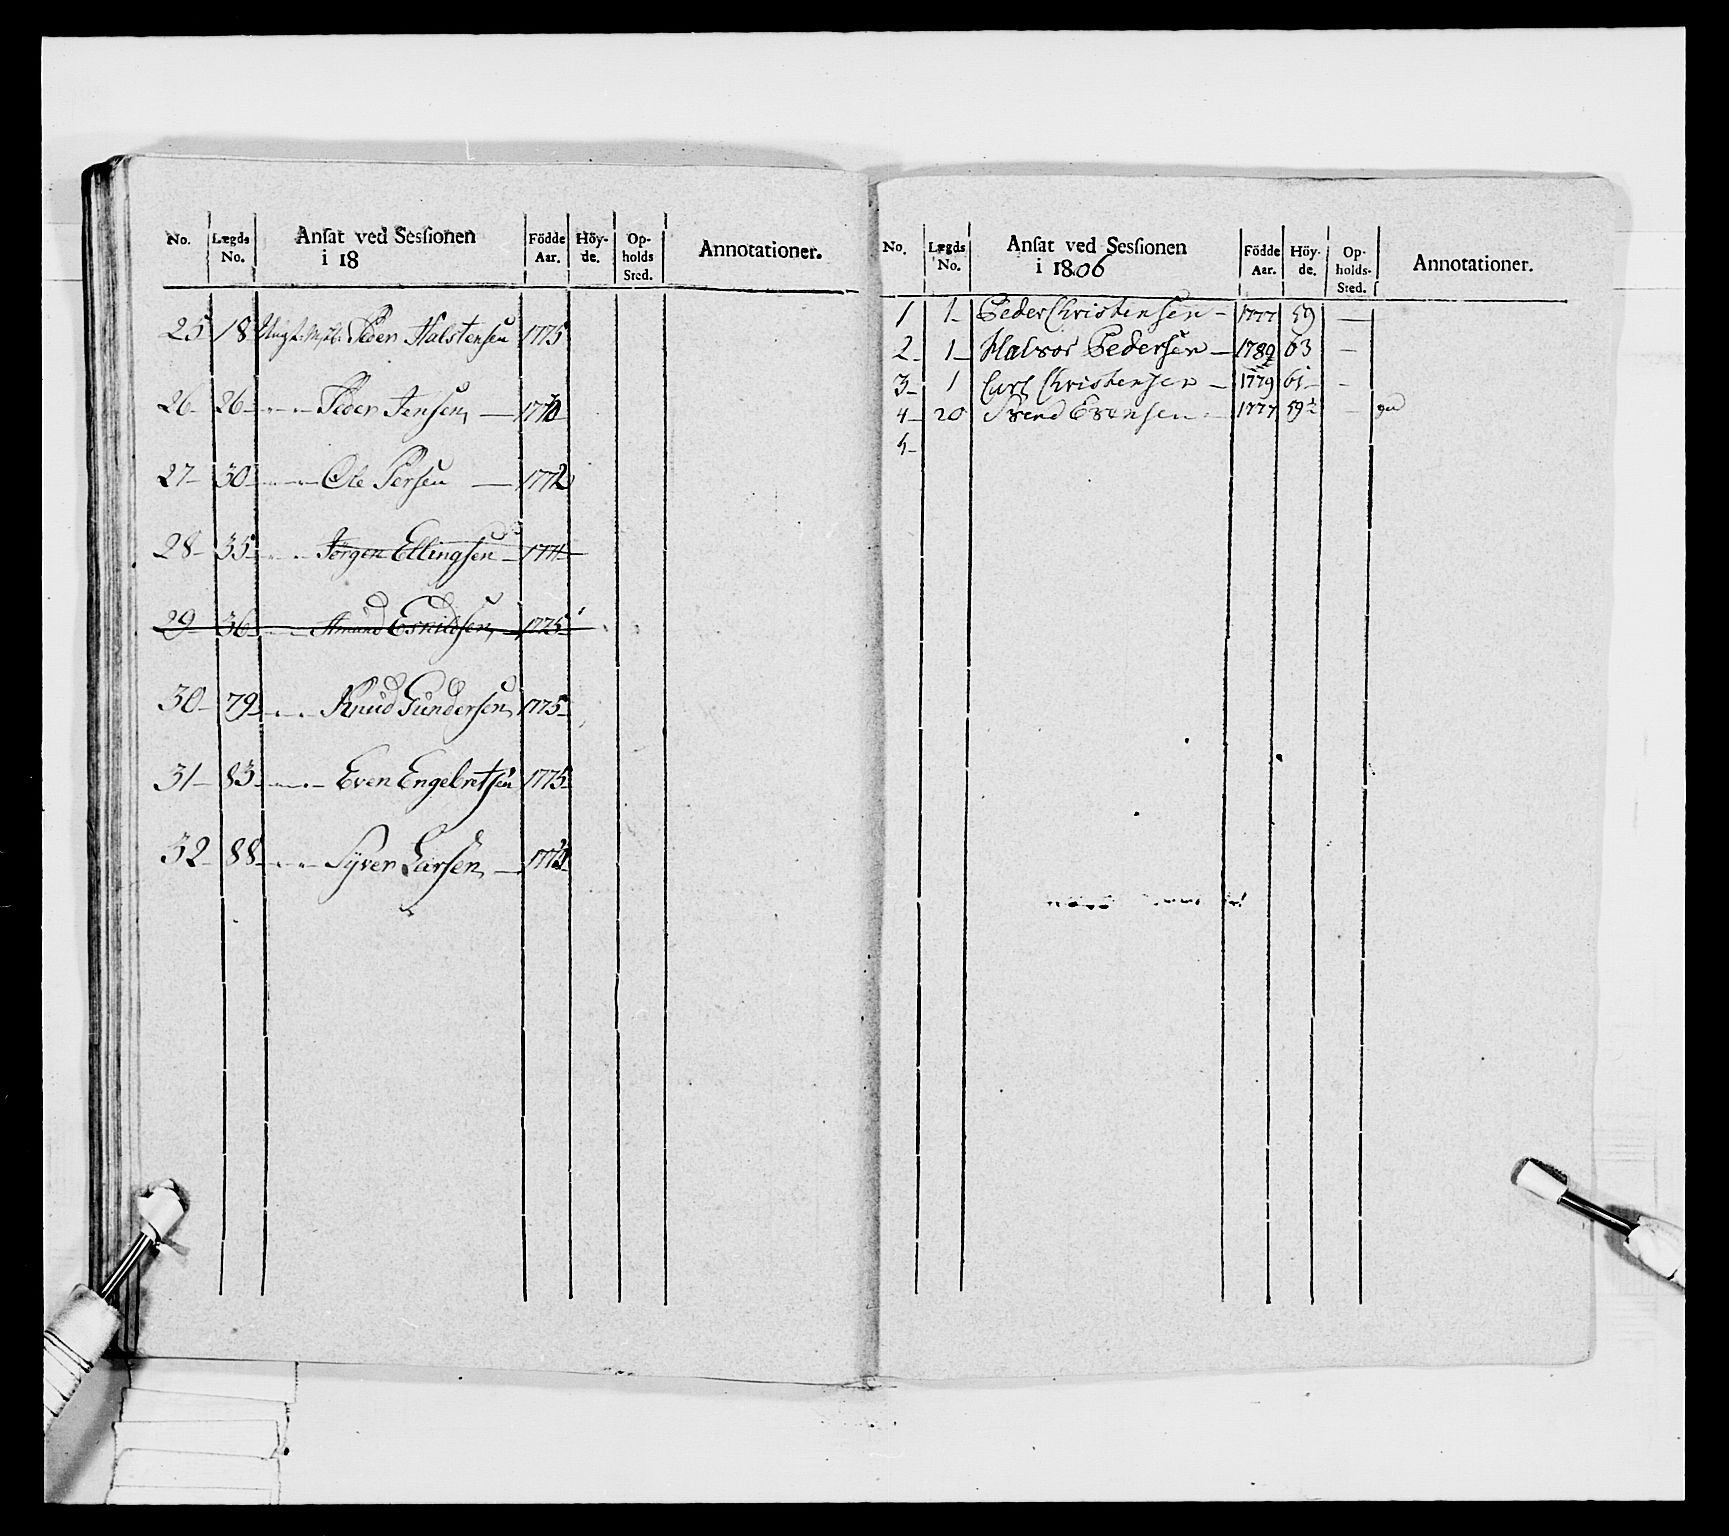 No. Lægds No. Ansat ved Sessionen i 18 Födde Aar. Höy-de. Op-holds Sted. Annotationer.
25 18 Peder Halstensen 1775
26 26 Peder Jensen 1770
27 30 Ole Persen 1772
28 35 Jörgen Ellingsen 1771
29 36 Amund Eskildsen 1775
30 79 Knud Gundersen 1775
31 83 Even Engebretsen 1775
32 88 Syver Larsen
No. Lægds No. Ansat ved Sessionen i 1806 Födde Aar. Höy-de. Op-holds-Sted. Annotationer.
1 1 Peder Christensen 1777 59
2 1 Halvor Pedersen 1789 63
3 1 Christensen 1779 61
4 20 Svend Evensen 1777 59½
5